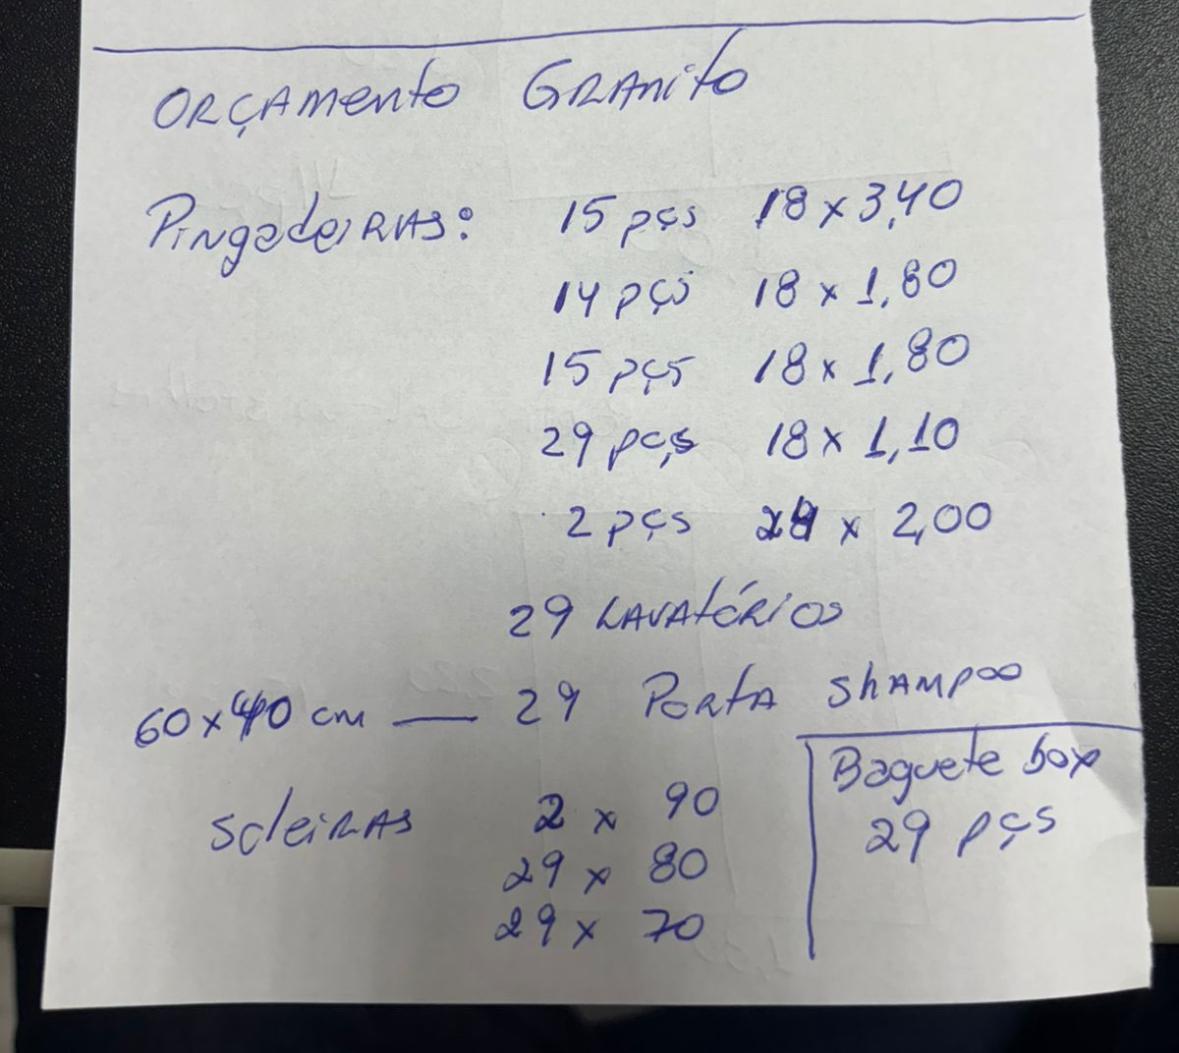 ORÇAmento GRAnito
PingadeiRAS: 15 pçs 18 x 3,40
14 pçs 18 x 1,80
15 pçs 18 x 1,80
29 pçs 18 x 1,10
2 pçs x 2,00
29 LAVAtÓRiOS
60 x 40 cm — 29 PORtA ShAMPOO
SoleiRAS 2 x 90
29 x 80
29 x 70
Baguete box
29 pçs